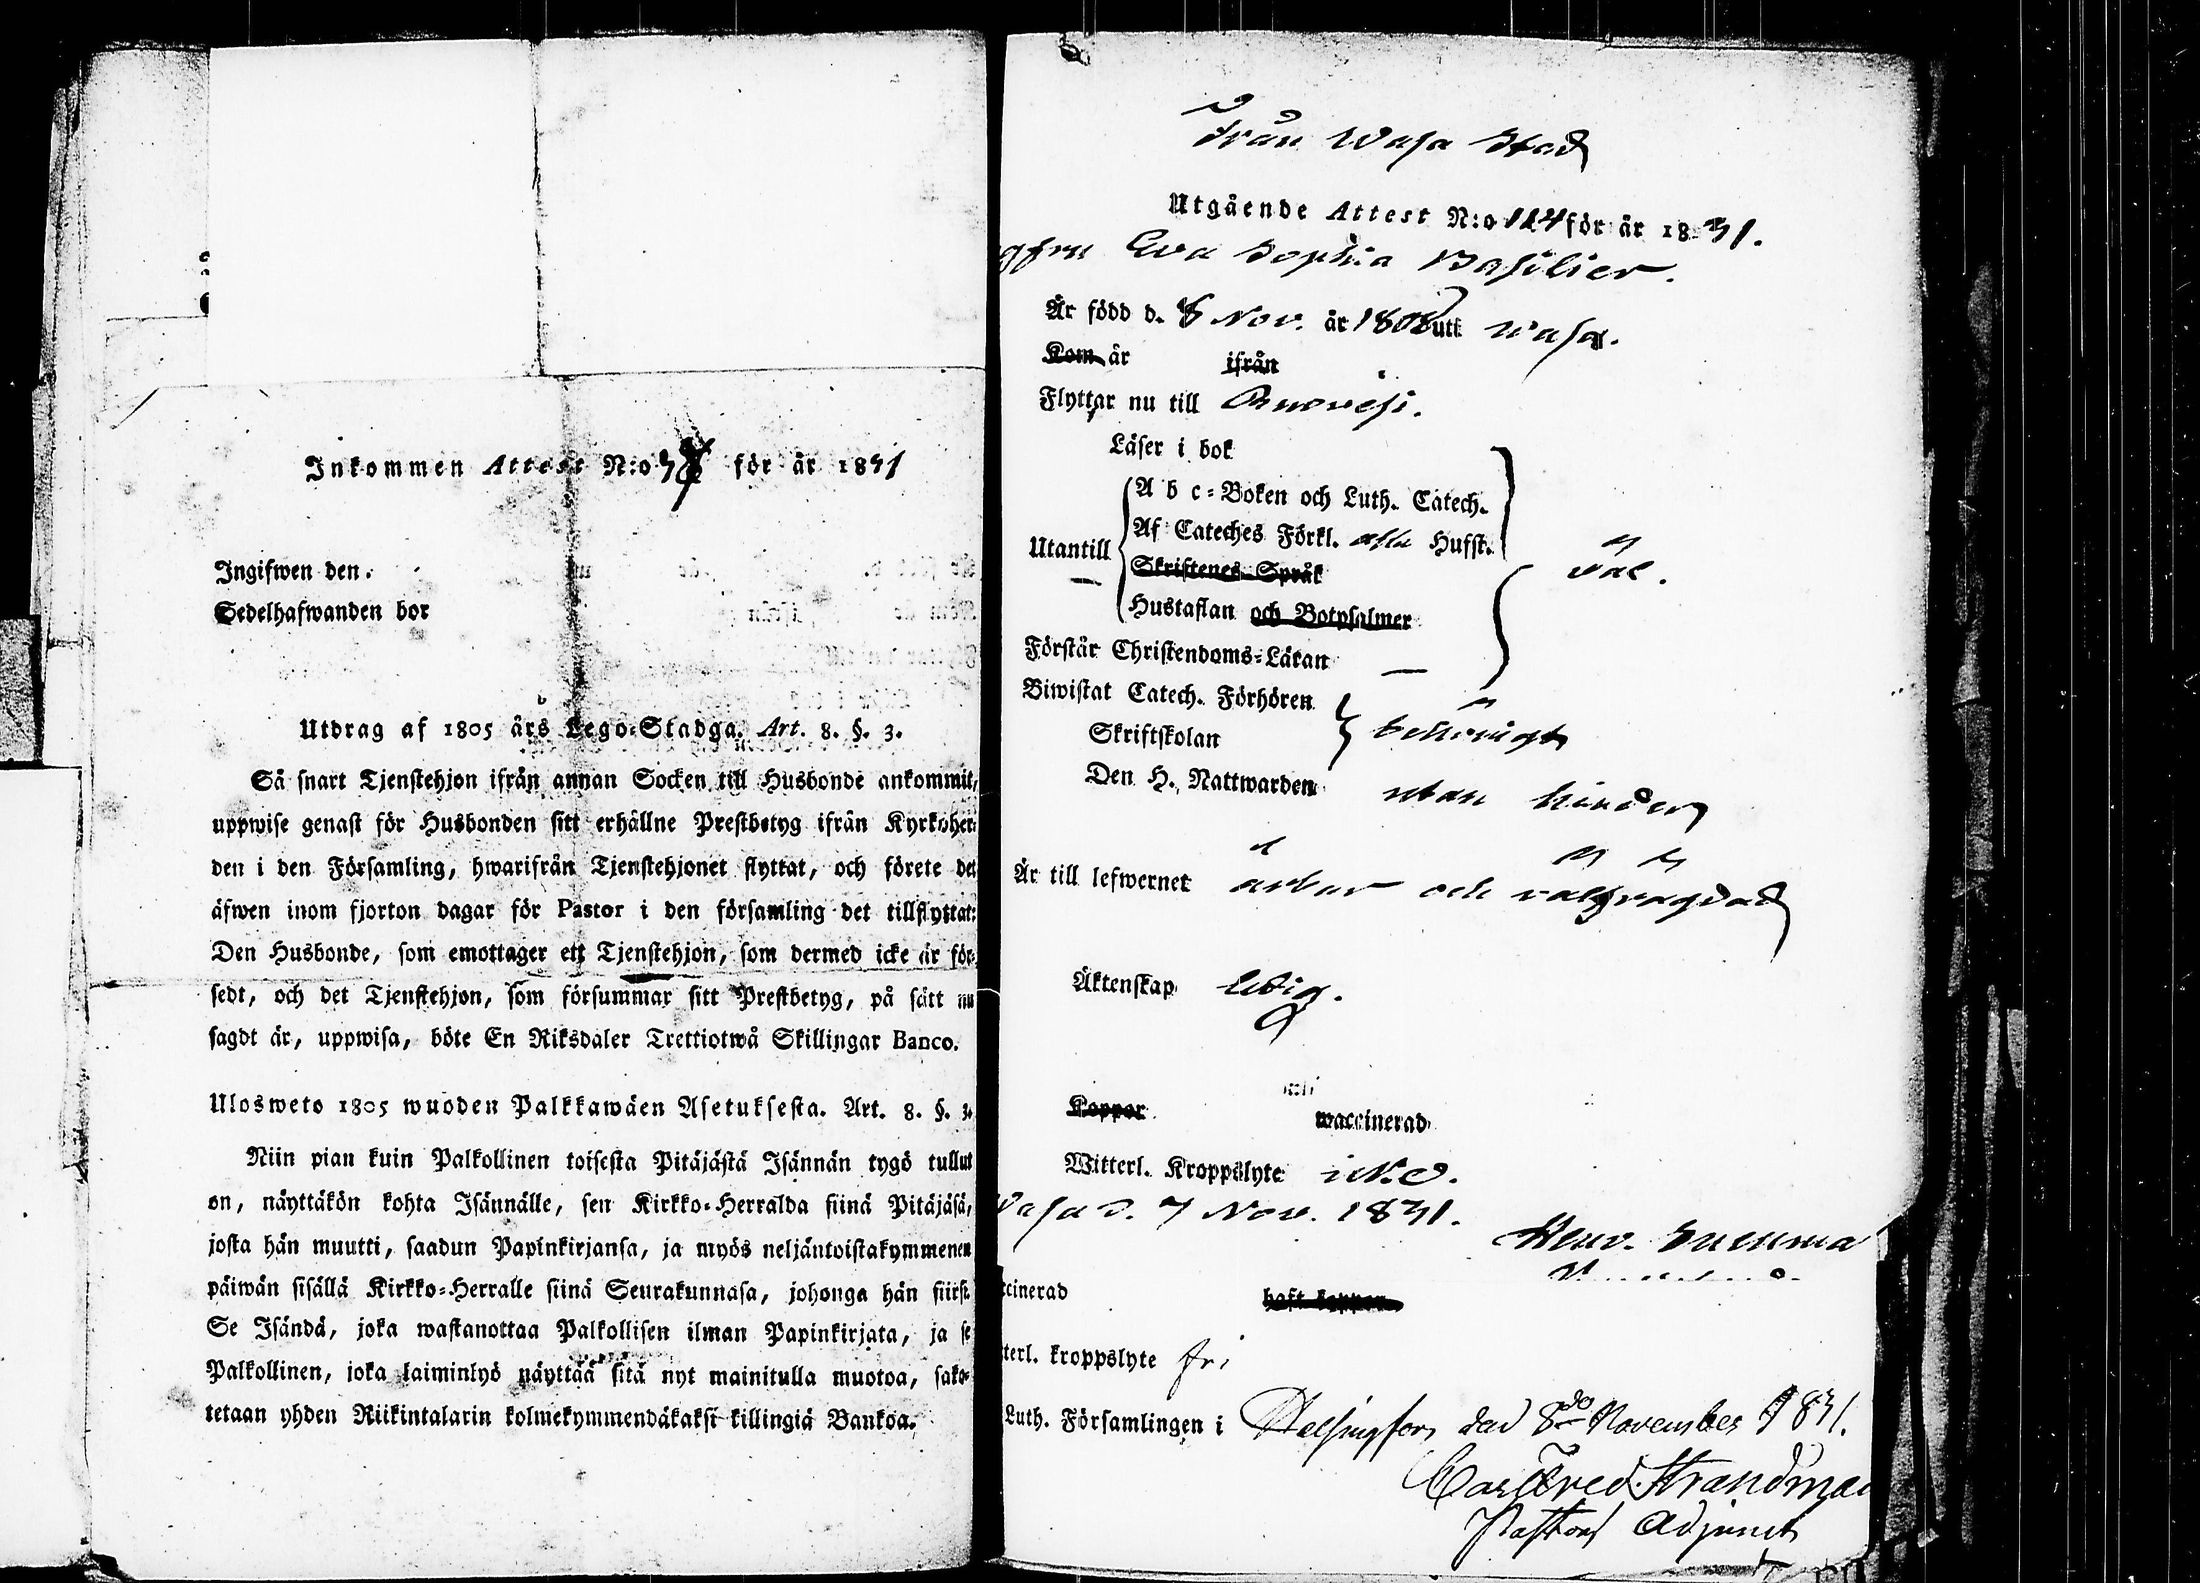 Inkommen Attest N:o 38 för år 1831
Ingifwen den.
Sedelhafwanden bor
Utdrag af 1805 års Lego-Stadga. Art. 8. §. 3.
Så snart Tjenstehjon ifrån annan Socken till Husbonde ankommit,
uppwise genast för Husbonden sitt erhållne Prestbetyg ifrån Kyrkoher-
den i den Församling, hwarifrån Tjenstehjonet flyttat, och förete det
äfwen inom fjorton dagar för Pastor i den församling det tillflyttat:
Den Husbonde, som emottager ett Tjenstehjon, som dermed icke är för-
sedt, och det Tjenstehjon, som försummar sitt Prestbetyg, på sätt nu
sagdt är, uppwisa, böte En Riksdaler Trettiotwå Skillingar Banco.
Ulosweto 1805 wuoden Palkkawäen Asetuksesta. Art. 8. §. 3.
Niin pian kuin Palkollinen toisesta Pitäjästä Isännän tygö tullut
on, näyttäkön kohta Isännälle, sen Kirkko-Herralda siinä Pitäjäsä,
josta hän muutti, saadun Papinkirjansa, ja myös neljäntoistakymmenen
päiwän sisällä Kirkko-Herralle siinä Seurakunnasa, johonga hän siirst.
Se Isändä, joka wastanottaa Palkollisen ilman Papinkirjata, ja se
Palkollinen, joka laiminlyö näyttää sitä nyt mainitulla muotoa, sako-
tetaan yhden Riikintalarin kolmekymmendäkaksi killingiä Bankoa.
Från Wasa Stad
Utgående Attest N:o 124 för år 1831.
gfru Eva Sophia Basilier.
Är född d. 8 Nov. år 1808 uti Wasa.
Kom år ifrån
Flyttar nu till Ruovesi.
Läser i bok
A b c-Boken och Luth. Catech.
Af Cateches Förkl. alla Hufst.
Utantill
Skriftenes Språk
väl.
Hustaflan och Botpsalmer
Förstår Christendoms-Läran —
Biwistat Catech. Förhören
Skriftskolan
behörigt
Den H. Nattwarden utan hinder
Är till lefwernet ärbar och välfrägdad
Äktenskap ledig.
Koppor waccinerad
Witterl. Kroppslyte icke.
Wasa d. 7 Nov. 1831.
Henr.
ccinerad haft koppor
terl. kroppslyte fri
Luth. Församlingen i Helsingfors den 8de November 1831.
Carl Fred. Strandman
Pastors Adjunct